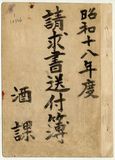 昭和十八年度
請求書送付簿
酒課